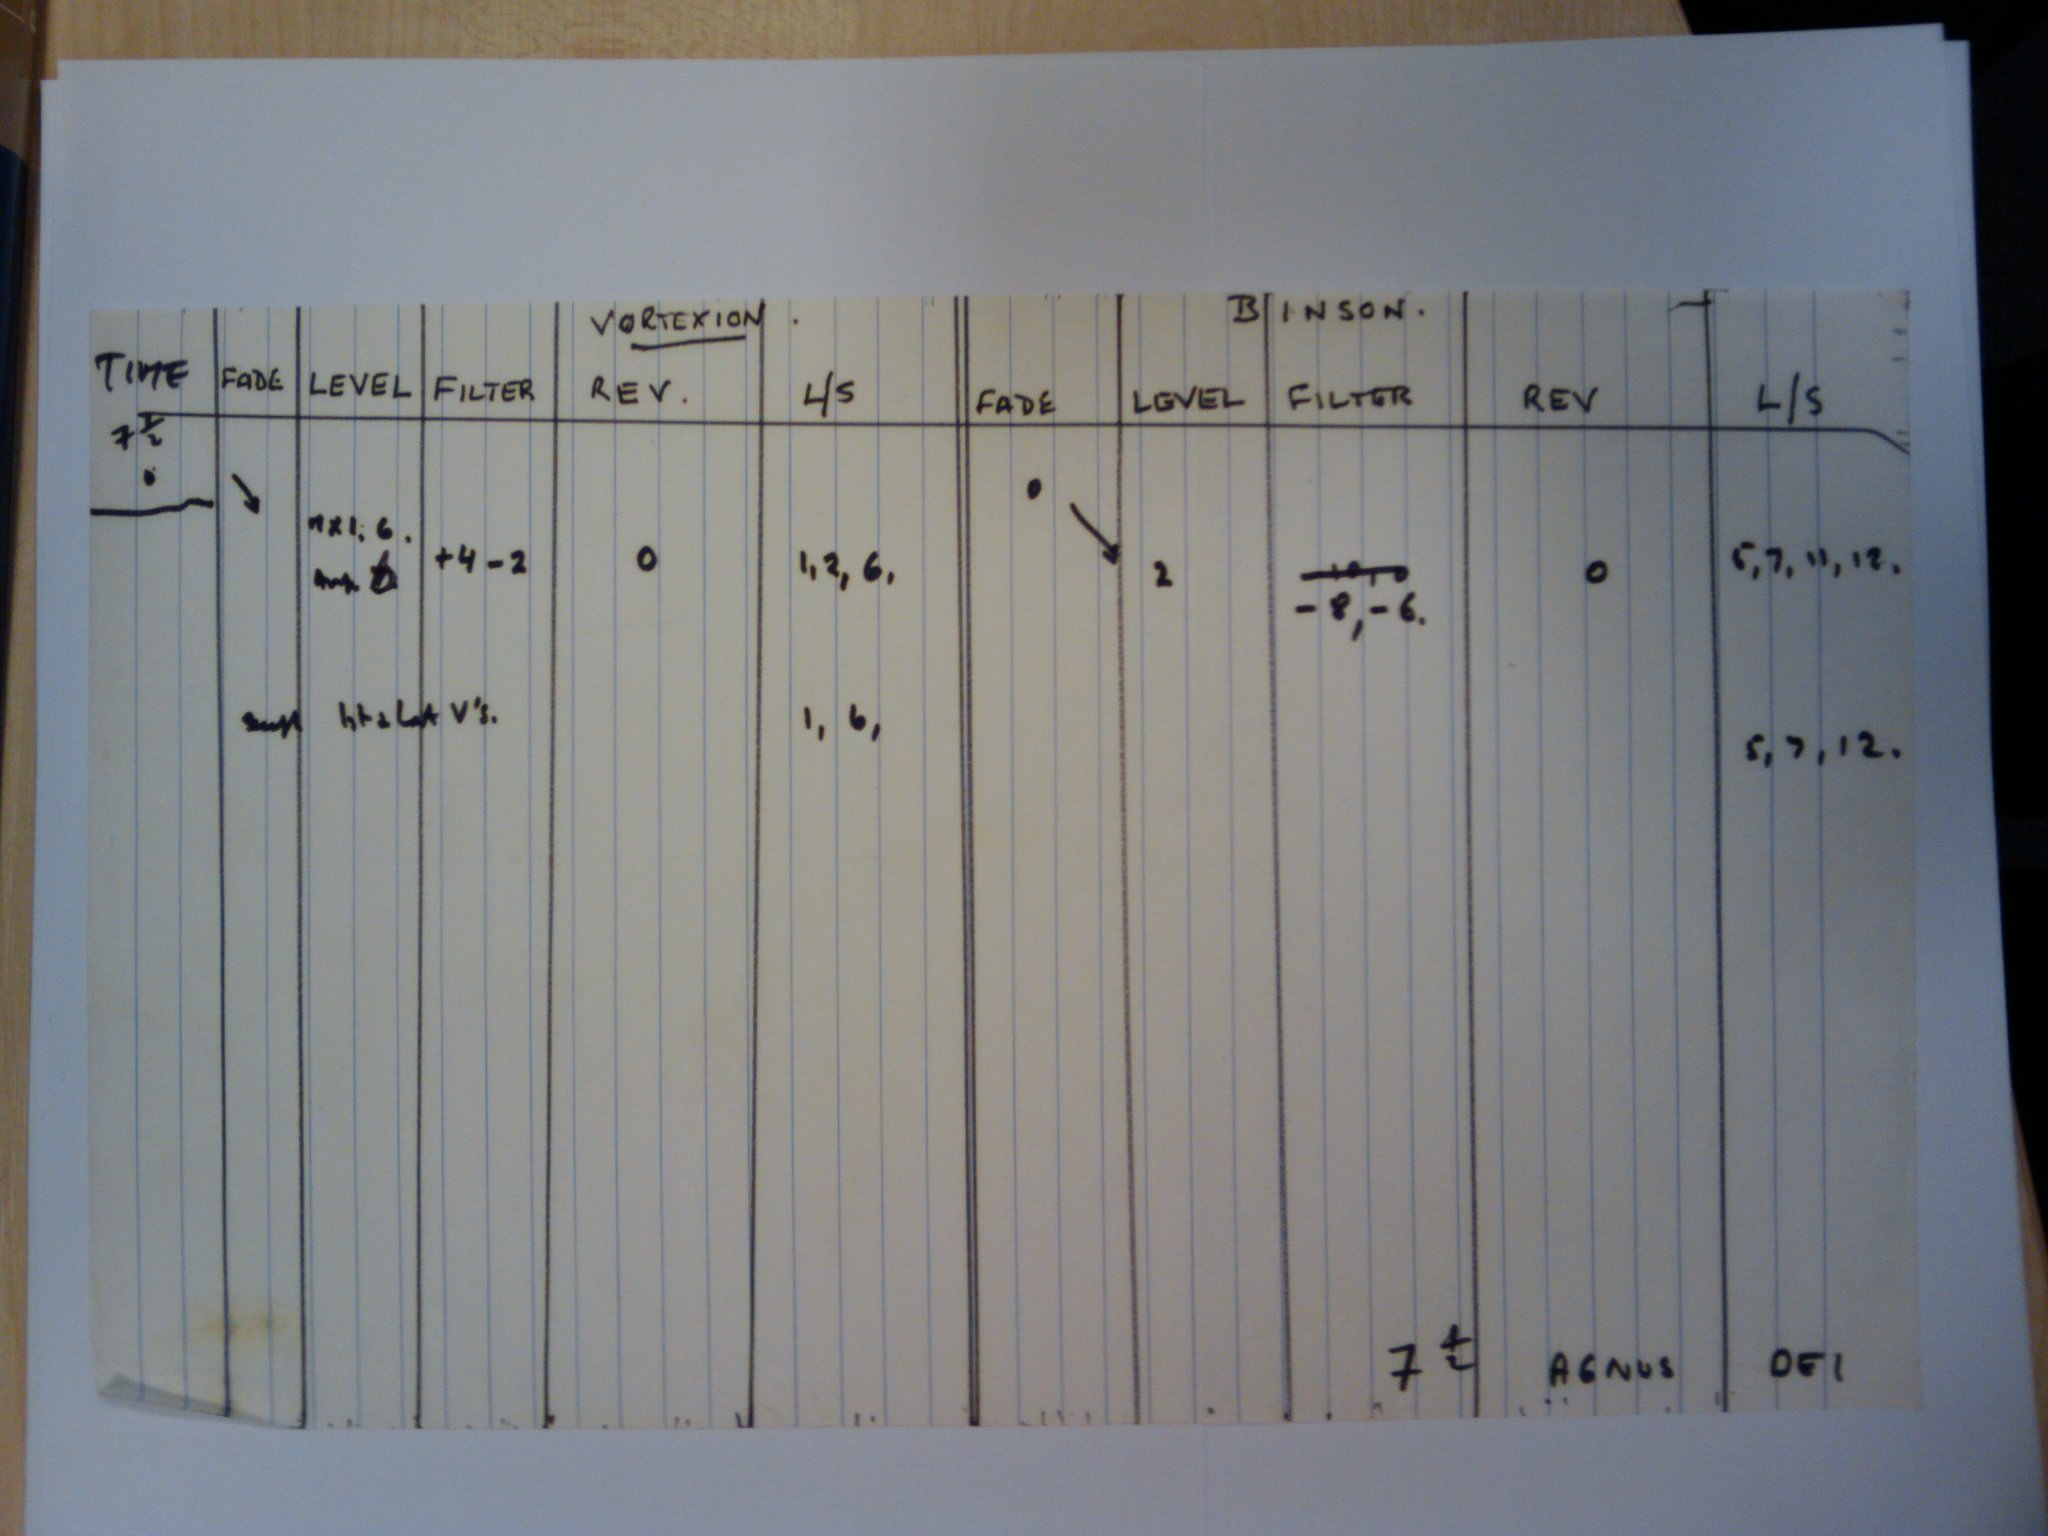 VORTEXION. BINSON.
TIME FADE LEVEL FILTER REV. L/S FADE LEVEL FILTER REV L/S
7 1/2
0 0
6.
+4 -2 0 1, 2, 6, 2 0 5, 7, 11, 12.
-8, -6.
V's. 1, 6,
5, 7, 12.
7 1/2 AGNUS DEI